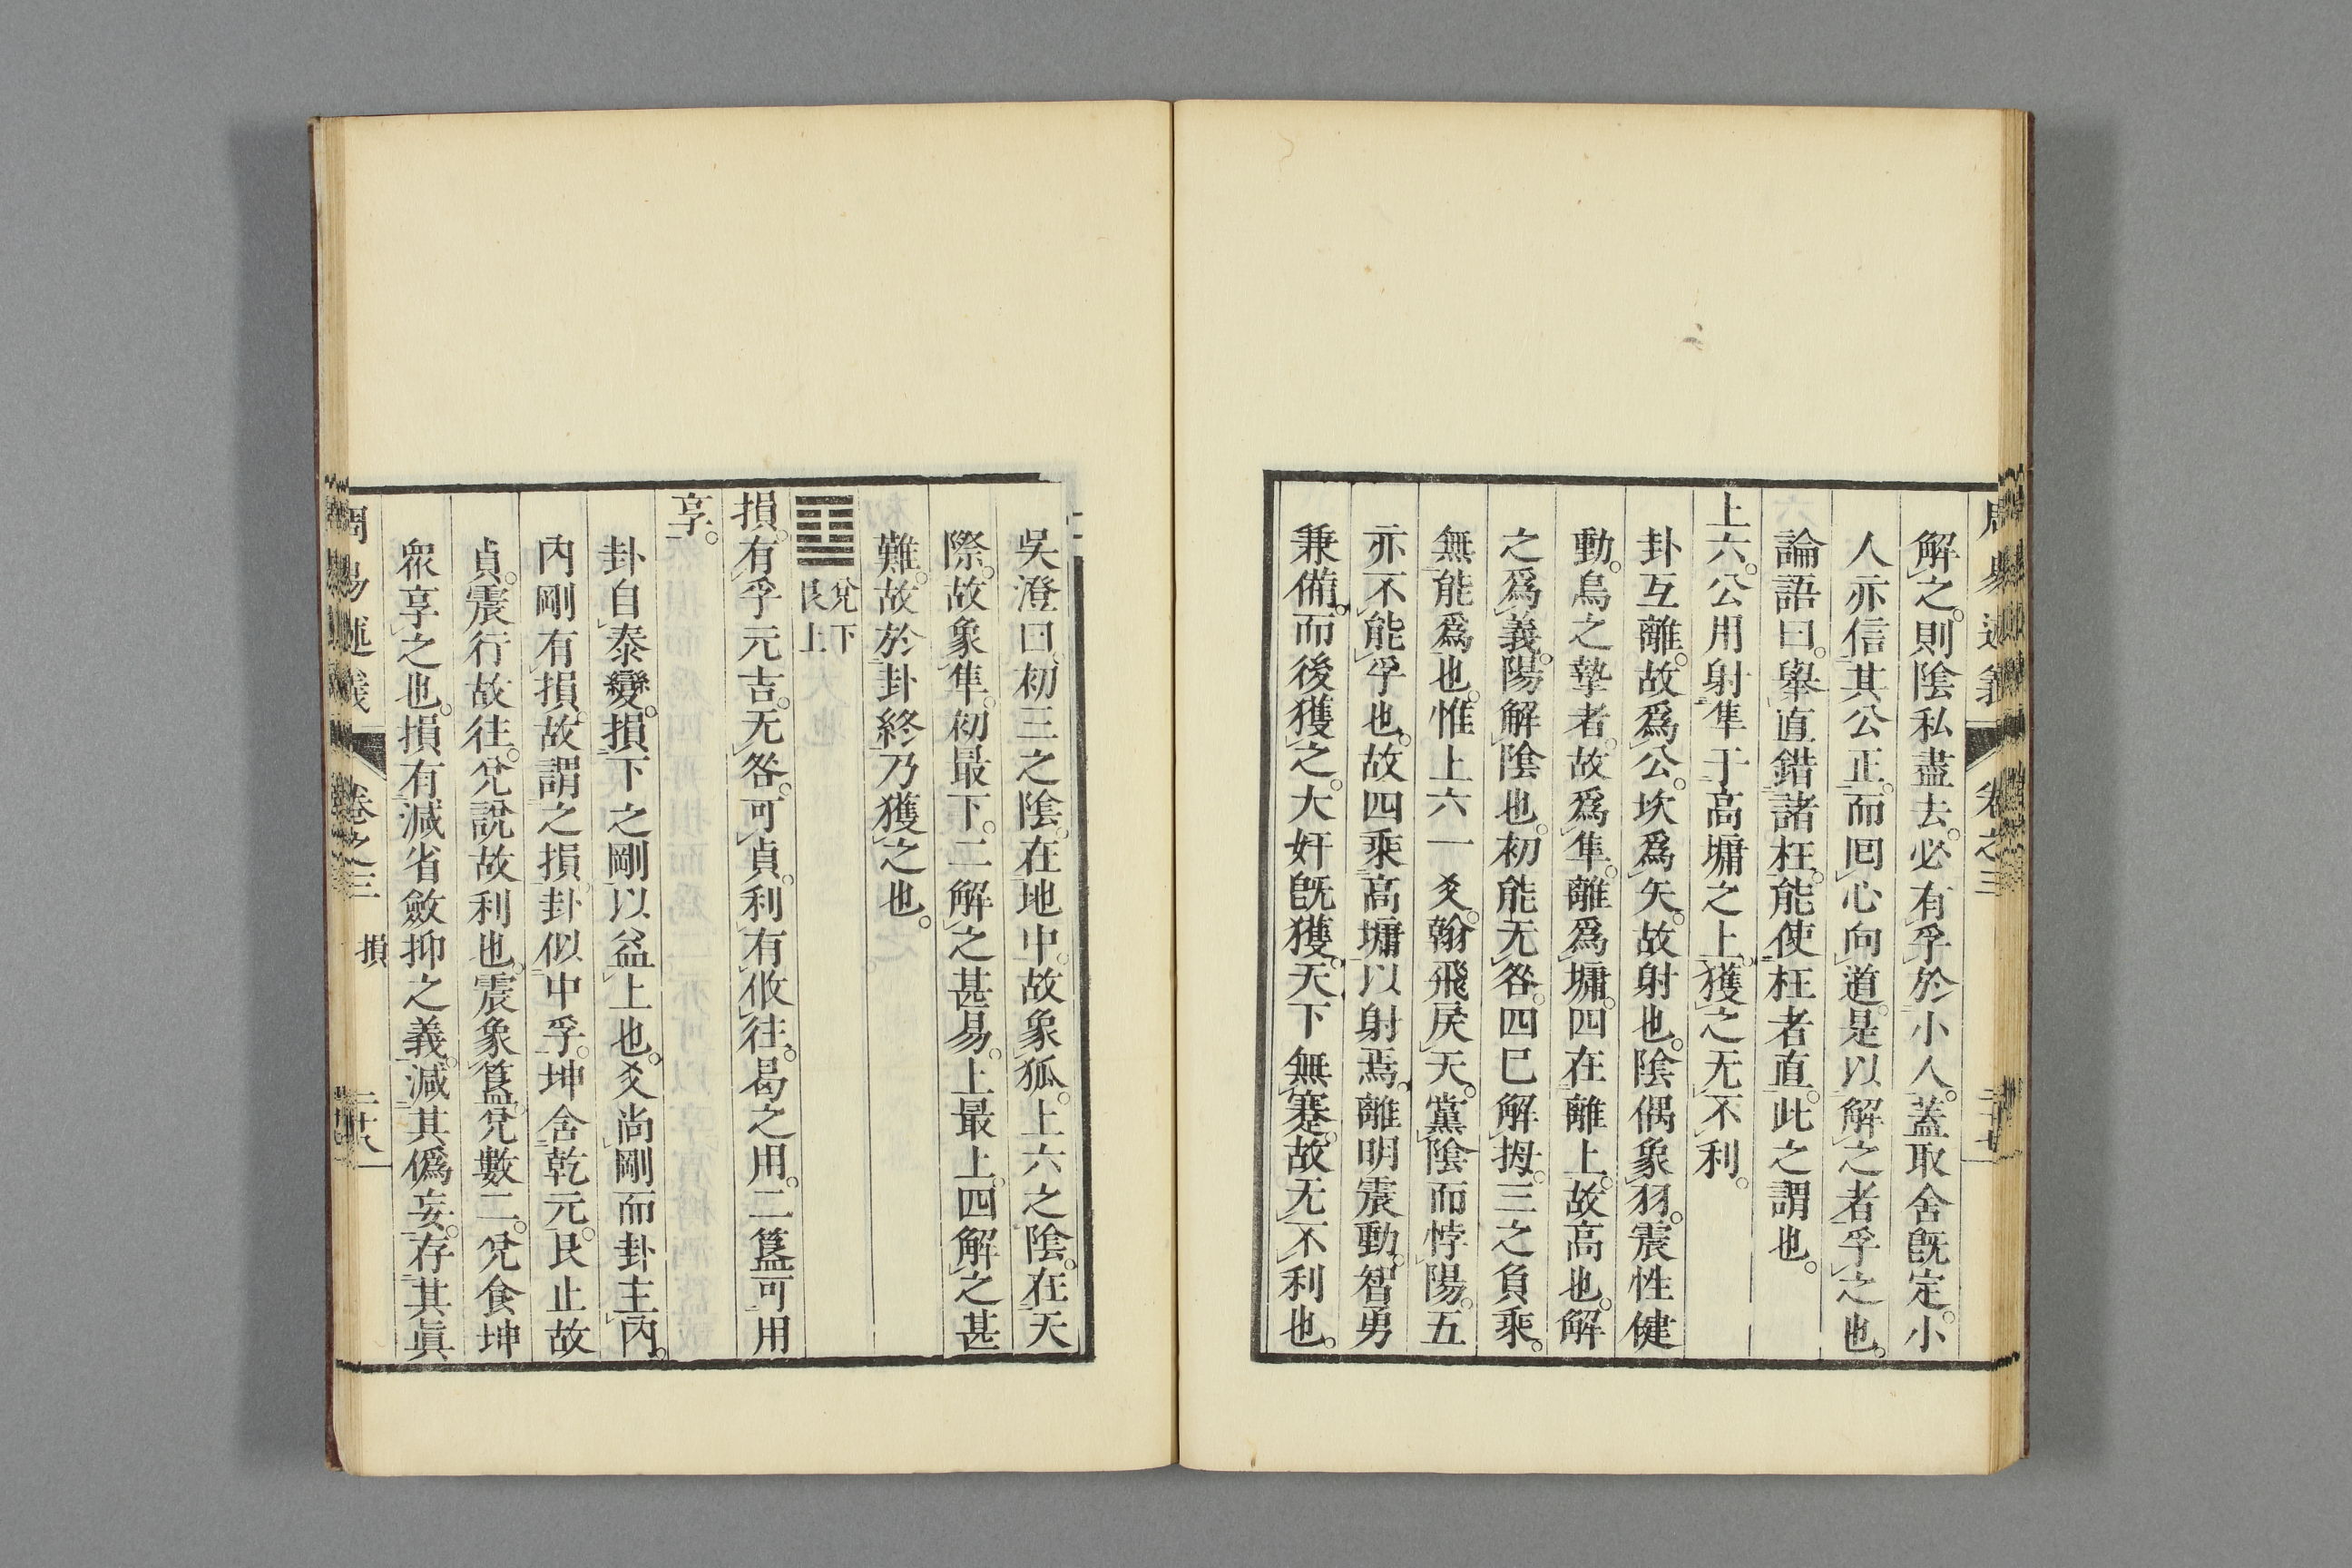 解之。則陰私盡去。必有孚於小人。蓋取舍旣定。小
人亦信其公正。而囘心向道。是以解之者孚之也。
論語曰。擧直錯諸枉。能使枉者直。此之謂也。
上六。公用射隼于高墉之上。獲之无不利。
卦互離。故爲公。坎爲矢。故射也。陰偶象羽。震性健
動。鳥之摯者。故爲隼。離爲墉。四在離上。故高也。解
之爲義。陽解陰也。初能无咎。四巳解拇。三之負乘。
無能爲也。惟上六一爻。翰飛戾天。黨陰而悖陽。五
亦不能孚也。故四乘高墉以射焉。離明震動。智勇
兼備。而後獲之。大奸旣獲。天下無蹇。故无不利也。
周易述義 卷之三 損 二十八
吳澄曰。初三之陰。在地中。故象狐。上六之陰。在天
際。故象隼。初最下。二解之甚易。上最上。四解之甚
難。故於卦終乃獲之也。
兌下
艮上
損。有孚元吉。无咎。可貞。利有攸往。曷之用。二簋可用
享。
卦自泰變。損下之剛以益上也。爻尚剛而卦主內。
內剛有損。故謂之損。卦似中孚。坤含乾元。艮止故
貞。震行故往。兌說故利也。震象簋。兌數二。兌食坤
衆享之也。損有減省斂抑之義。減其僞妄。存其眞